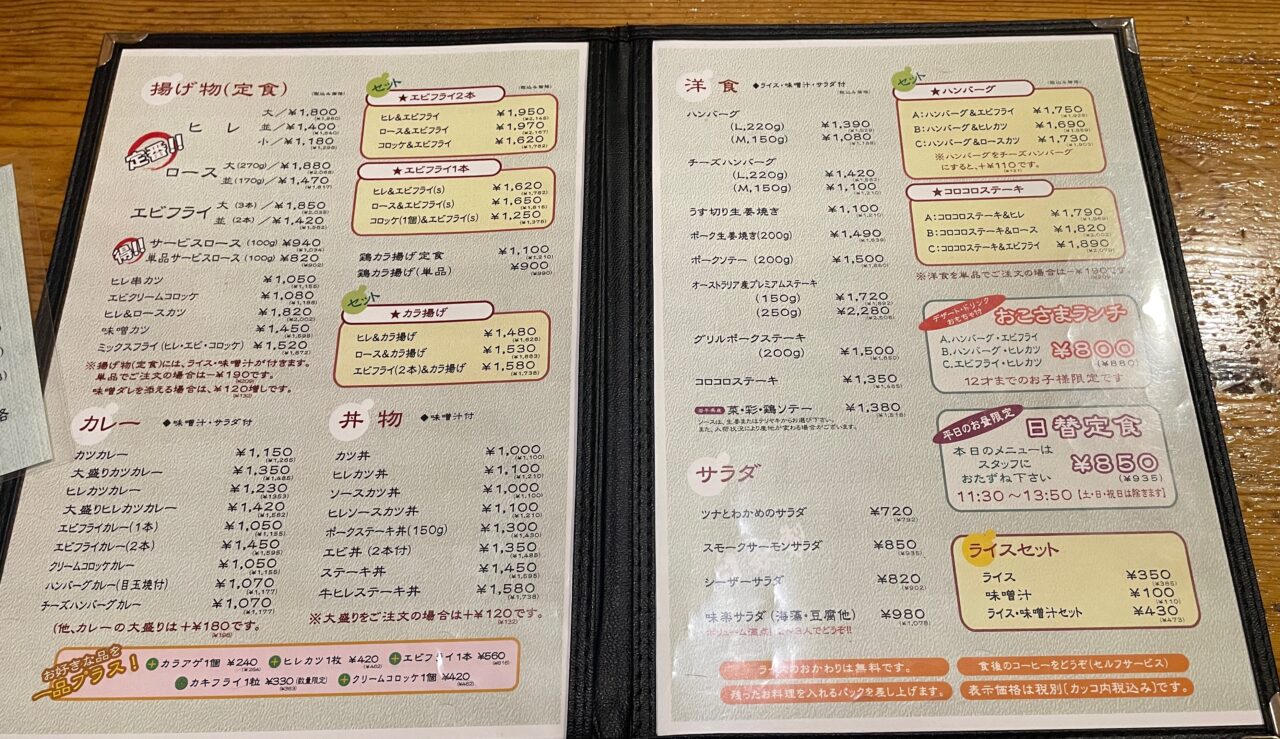 揚げ物(定食)
(税込み価格)
定番!!
ヒレ
大/¥1,800
並/¥1,400
(¥1,540)
小/¥1,180
(¥1,298)
ロース
大(270g)/¥1,880
(¥2,068)
並(170g)/¥1,470
(¥1,617)
エビフライ
大(3本)/¥1,850
(¥2,035)
並(2本)/¥1,420
(¥1,562)
得!!
サービスロース(100g) ¥940
(¥1,034)
単品サービスロース(100g) ¥820
(¥902)
ヒレ串カツ ¥1,050
(¥1,155)
エビクリームコロッケ ¥1,080
(¥1,188)
ヒレ&ロースカツ ¥1,820
(¥2,002)
味噌カツ ¥1,450
(¥1,595)
ミックスフライ(ヒレ・エビ・コロッケ) ¥1,520
(¥1,672)
※揚げ物(定食)には、ライス・味噌汁が付きます。
単品でご注文の場合は-¥190です。
(¥209)
味噌ダレを添える場合は、¥120増しです。
(¥132)
セット
(税込み価格)
★エビフライ2本
ヒレ&エビフライ ¥1,950
(¥2,145)
ロース&エビフライ ¥1,970
(¥2,167)
コロッケ&エビフライ ¥1,620
(¥1,782)
★エビフライ1本
ヒレ&エビフライ(s) ¥1,620
(¥1,782)
ロース&エビフライ(s) ¥1,650
(¥1,815)
コロッケ(1個)&エビフライ(s) ¥1,250
(¥1,375)
鶏カラ揚げ定食 ¥1,100
(¥1,210)
鶏カラ揚げ(単品) ¥900
(¥990)
セット
★カラ揚げ
ヒレ&カラ揚げ ¥1,480
(¥1,628)
ロース&カラ揚げ ¥1,530
(¥1,683)
エビフライ(2本)&カラ揚げ ¥1,580
(¥1,738)
カレー ◆味噌汁・サラダ付
カツカレー ¥1,150
(¥1,265)
大盛りカツカレー ¥1,350
(¥1,485)
ヒレカツカレー ¥1,230
(¥1353)
大盛りヒレカツカレー ¥1,420
(¥1,562)
エビフライカレー(1本) ¥1,050
(¥1,155)
エビフライカレー(2本) ¥1,450
(¥1,595)
クリームコロッケカレー ¥1,050
(¥1,155)
ハンバーグカレー(目玉焼付) ¥1,070
(¥1,177)
チーズハンバーグカレー ¥1,070
(¥1,177)
(他、カレーの大盛りは+¥180です。
(¥198)
丼物 ◆味噌汁付
カツ丼 ¥1,000
(¥1,100)
ヒレカツ丼 ¥1,100
(¥1,210)
ソースカツ丼 ¥1,000
(¥1,100)
ヒレソースカツ丼 ¥1,100
(¥1,210)
ポークステーキ丼(150g) ¥1,300
(¥1,430)
エビ丼(2本付) ¥1,350
(¥1,485)
ステーキ丼 ¥1,450
(¥1,595)
牛ヒレステーキ丼 ¥1,580
(¥1,738)
※大盛りをご注文の場合は+¥120です。
(¥132)
お好きな品を
一品プラス!
+カラアゲ1個 ¥240
(¥264)
+ヒレカツ1枚 ¥420
(¥462)
+エビフライ1本 ¥560
(¥616)
カキフライ1粒 ¥330(数量限定)
(¥363)
+クリームコロッケ1個 ¥420
(¥462)
洋食 ◆ライス・味噌汁・サラダ付
(税込み価格)
ハンバーグ
(L,220g) ¥1,390
(¥1,529)
(M,150g) ¥1,080
(¥1,188)
チーズハンバーグ
(L,220g) ¥1,420
(¥1,562)
(M,150g) ¥1,100
(¥1,210)
うす切り生姜焼き ¥1,100
(¥1,210)
ポーク生姜焼き(200g) ¥1,490
(¥1,639)
ポークソテー(200g) ¥1,500
オーストラリア産プレミアムステーキ
(150g) ¥1,720
(¥1,892)
(250g) ¥2,280
(¥2,508)
グリルポークステーキ
(200g) ¥1,500
コロコロステーキ ¥1,350
(¥1,485)
岩手県産 菜・彩・鶏ソテー ¥1,380
(¥1,518)
ソースは、生姜またはテリヤキからお選び下さい。
また、入荷状況により産地が変わる場合がございます。
サラダ
ツナとわかめのサラダ ¥720
(¥792)
スモークサーモンサラダ ¥850
(¥935)
シーザーサラダ ¥820
(¥902)
味楽サラダ(海藻・豆腐他) ¥980
(¥1,078)
ボリューム満点!2~3人でどうぞ!!
セット
(税込み価格)
★ハンバーグ
A:ハンバーグ&エビフライ ¥1,750
(¥1,925)
B:ハンバーグ&ヒレカツ ¥1,690
(¥1,859)
C:ハンバーグ&ロースカツ ¥1,730
(¥1,903)
※ハンバーグをチーズハンバーグ
にすると、+¥110です。
(¥121)
★コロコロステーキ
A:コロコロステーキ&ヒレ ¥1,790
(¥1,969)
B:コロコロステーキ&ロース ¥1,820
(¥2,002)
C:コロコロステーキ&エビフライ ¥1,890
(¥2,079)
※洋食を単品でご注文の場合は-¥190です
デザート・ドリンク
おもちゃ付
おこさまランチ
A.ハンバーグ・エビフライ
B.ハンバーグ・ヒレカツ
C.エビフライ・ヒレカツ
¥800
(¥880)
12才までのお子様限定です
平日のお昼限定
日替定食
本日のメニューは
スタッフに
おたずね下さい
¥850
(¥935)
11:30~13:50 [土・日・祝日は除きます]
ライスセット
ライス ¥350
(¥385)
味噌汁 ¥100
(¥110)
ライス・味噌汁セット ¥430
(¥473)
ライスのおかわりは無料です。
食後のコーヒーをどうぞ(セルフサービス)
残ったお料理を入れるパックを差し上げます。
表示価格は税別[カッコ内税込み]です。